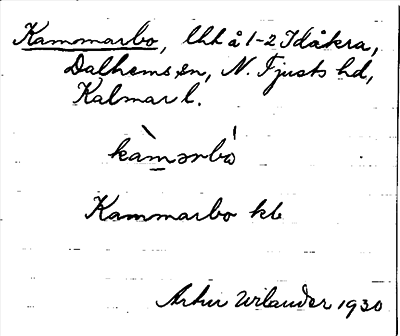 Kammarbo, lhh å 1-2 Idåkra,
Dalhems sn, N. Tjusts hd,
Kalmar l.
kàmərbó
Kammarbo kb
Arthur Wilander 1930